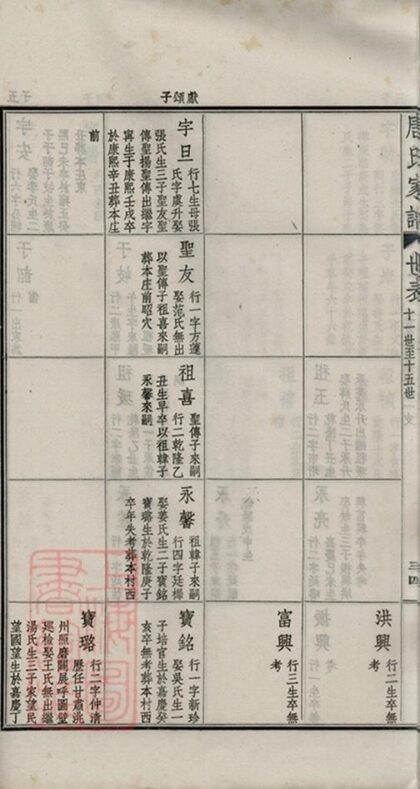 唐氏家譜
世表
十一世至十五世
支
三四
獻頌子
宇旦
行七生母張
氏字虞升娶
張氏生三子聖友聖
傳聖揚聖傳出繼字
寧生于康熙壬戌卒
於康熙辛丑葬本庄
前
聖友
行一字方蓬
娶范氏無出
以聖傳子祖喜來嗣
葬本庄前昭穴
祖喜
聖傳子來嗣
行二乾隆乙
丑生早卒以祖韓子
永馨來嗣
永馨
祖韓子來嗣
行四字廷樑
娶姜氏生二子寶銘
寶璐生於乾隆庚子
卒年失考葬本村西
洪興
行二生卒無
考
富興
行三生卒無
考
寶銘
行一字新珍
娶吳氏生一
子培官生於嘉慶癸
亥卒無考葬本村西
寶璐
行二字仲清
歷任甘肅洮
州照磨關展呼圖壁
廵檢娶王氏無出繼
湯氏生三子家望民
望國望生於嘉慶丁